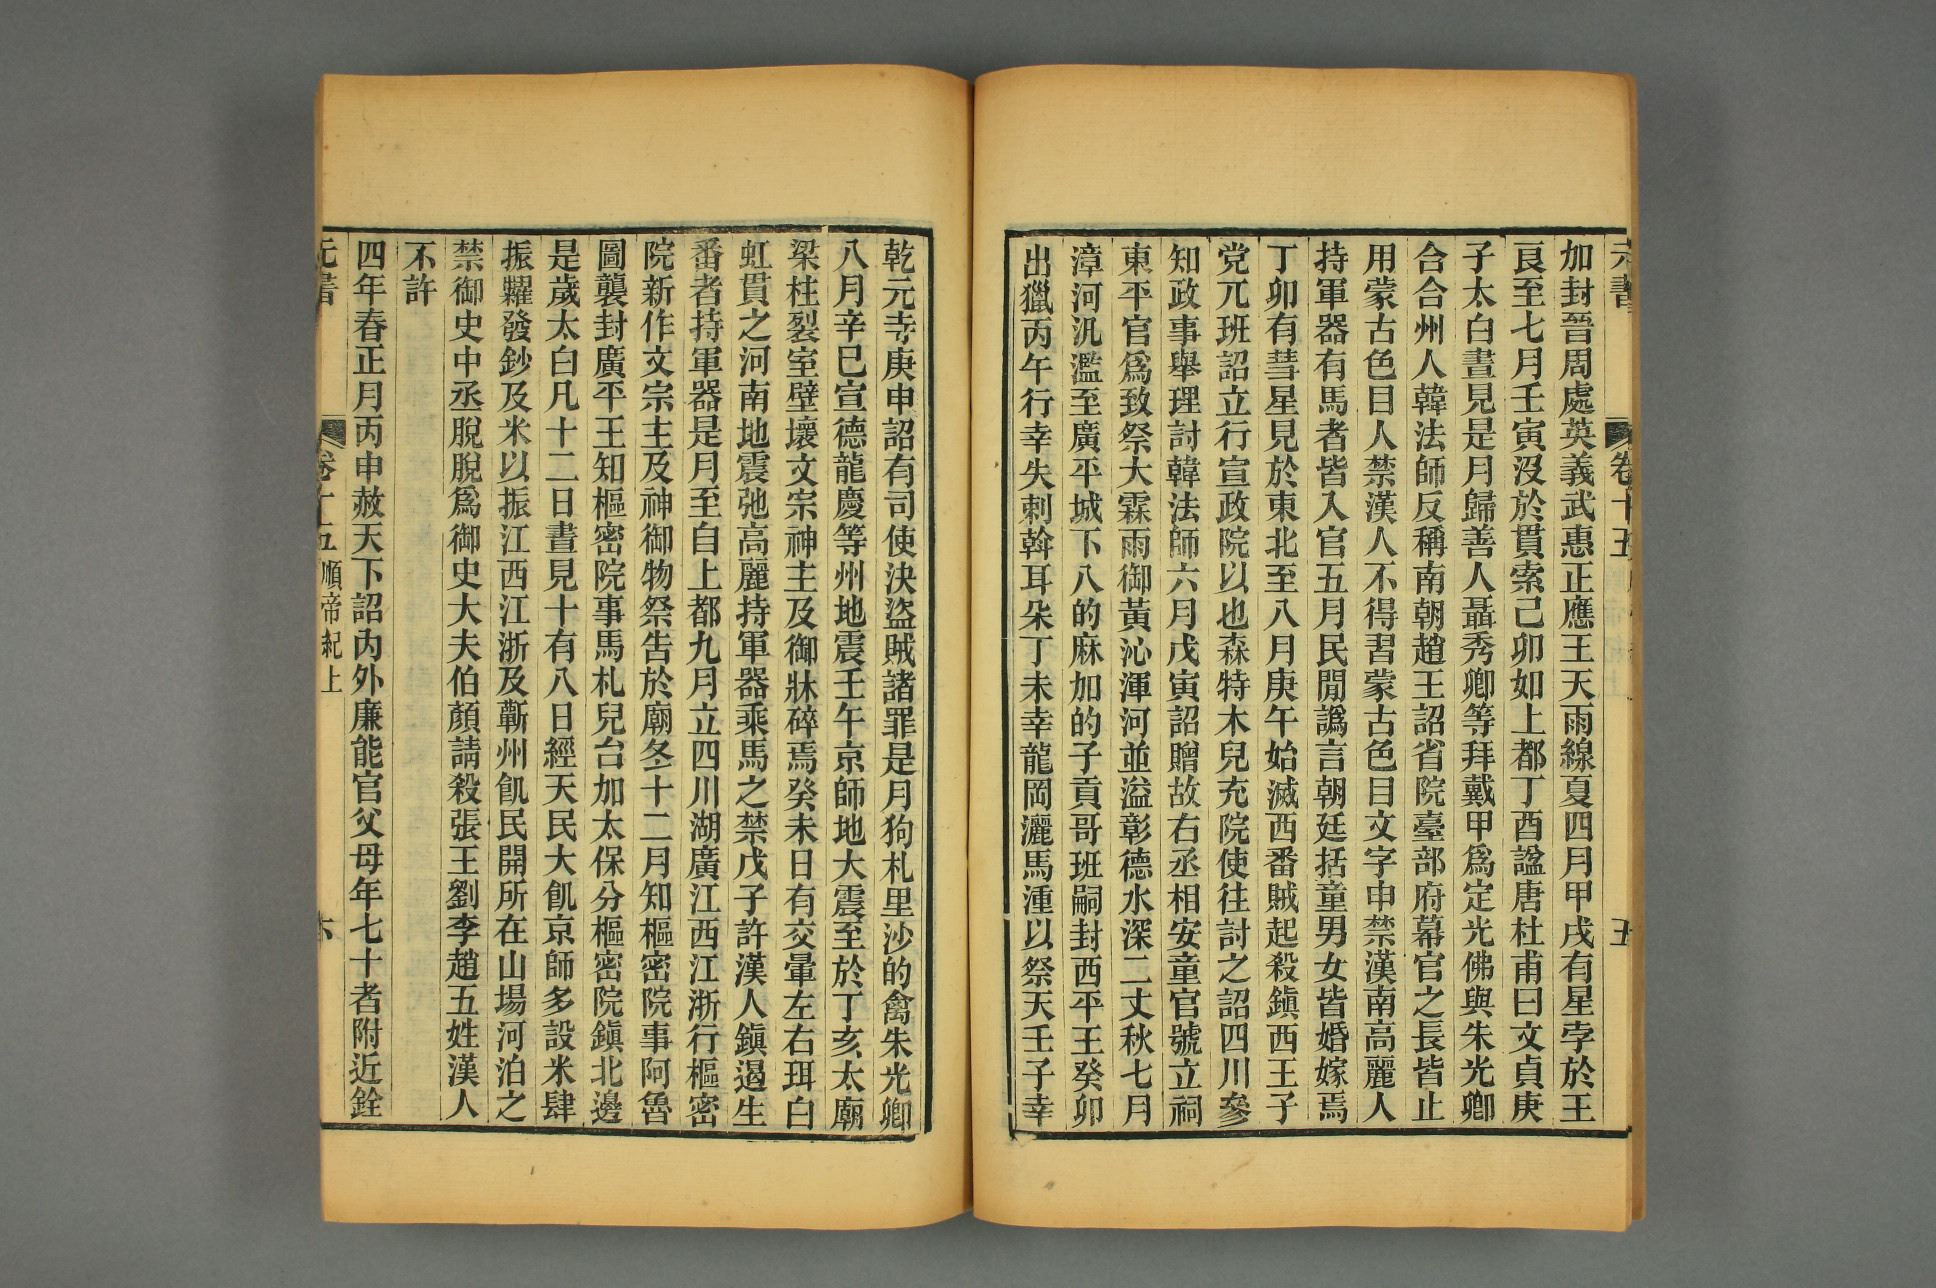 元書
卷十五
五
加封晉周處英義武惠正應王天雨線夏四月甲戌有星孛於王
良至七月壬寅沒於貫索己卯如上都丁酉諡唐杜甫曰文貞庚
子太白晝見是月歸善人聶秀卿等拜戴甲爲定光佛與朱光卿
合合州人韓法師反稱南朝趙王詔省院臺部府幕官之長皆止
用蒙古色目人禁漢人不得習蒙古色目文字申禁漢南高麗人
持軍器有馬者皆入官五月民閒譌言朝廷括童男女皆婚嫁焉
丁卯有彗星見於東北至八月庚午始滅西番賊起殺鎭西王子
党兀班詔立行宣政院以也森特木兒充院使往討之詔四川參
知政事舉理討韓法師六月戊寅詔贈故右丞相安童官號立祠
東平官爲致祭大霖雨御黃沁渾河並溢彰德水深二丈秋七月
漳河汎濫至廣平城下八的麻加的子貢哥班嗣封西平王癸卯
出獵丙午行幸失刺斡耳朵丁未幸龍岡灑馬湩以祭天壬子幸
乾元寺庚申詔有司使決盜賊諸罪是月狗札里沙的禽朱光卿
八月辛巳宣德龍慶等州地震壬午京師地大震至於丁亥太廟
梁柱裂室壁壞文宗神主及御牀碎焉癸未日有交暈左右珥白
虹貫之河南地震弛高麗持軍器乘馬之禁戊子許漢人鎭遏生
番者持軍器是月至自上都九月立四川湖廣江西江浙行樞密
院新作文宗主及神御物祭吿於廟冬十二月知樞密院事阿魯
圖襲封廣平王知樞密院事馬札兒台加太保分樞密院鎭北邊
是歲太白凡十二日晝見十有八日經天民大飢京師多設米肆
振糶發鈔及米以振江西江浙及蘄州飢民開所在山場河泊之
禁御史中丞脫脫爲御史大夫伯顏請殺張王劉李趙五姓漢人
不許
四年春正月丙申赦天下詔內外廉能官父母年七十者附近銓
元書
卷十五 順帝紀上
六